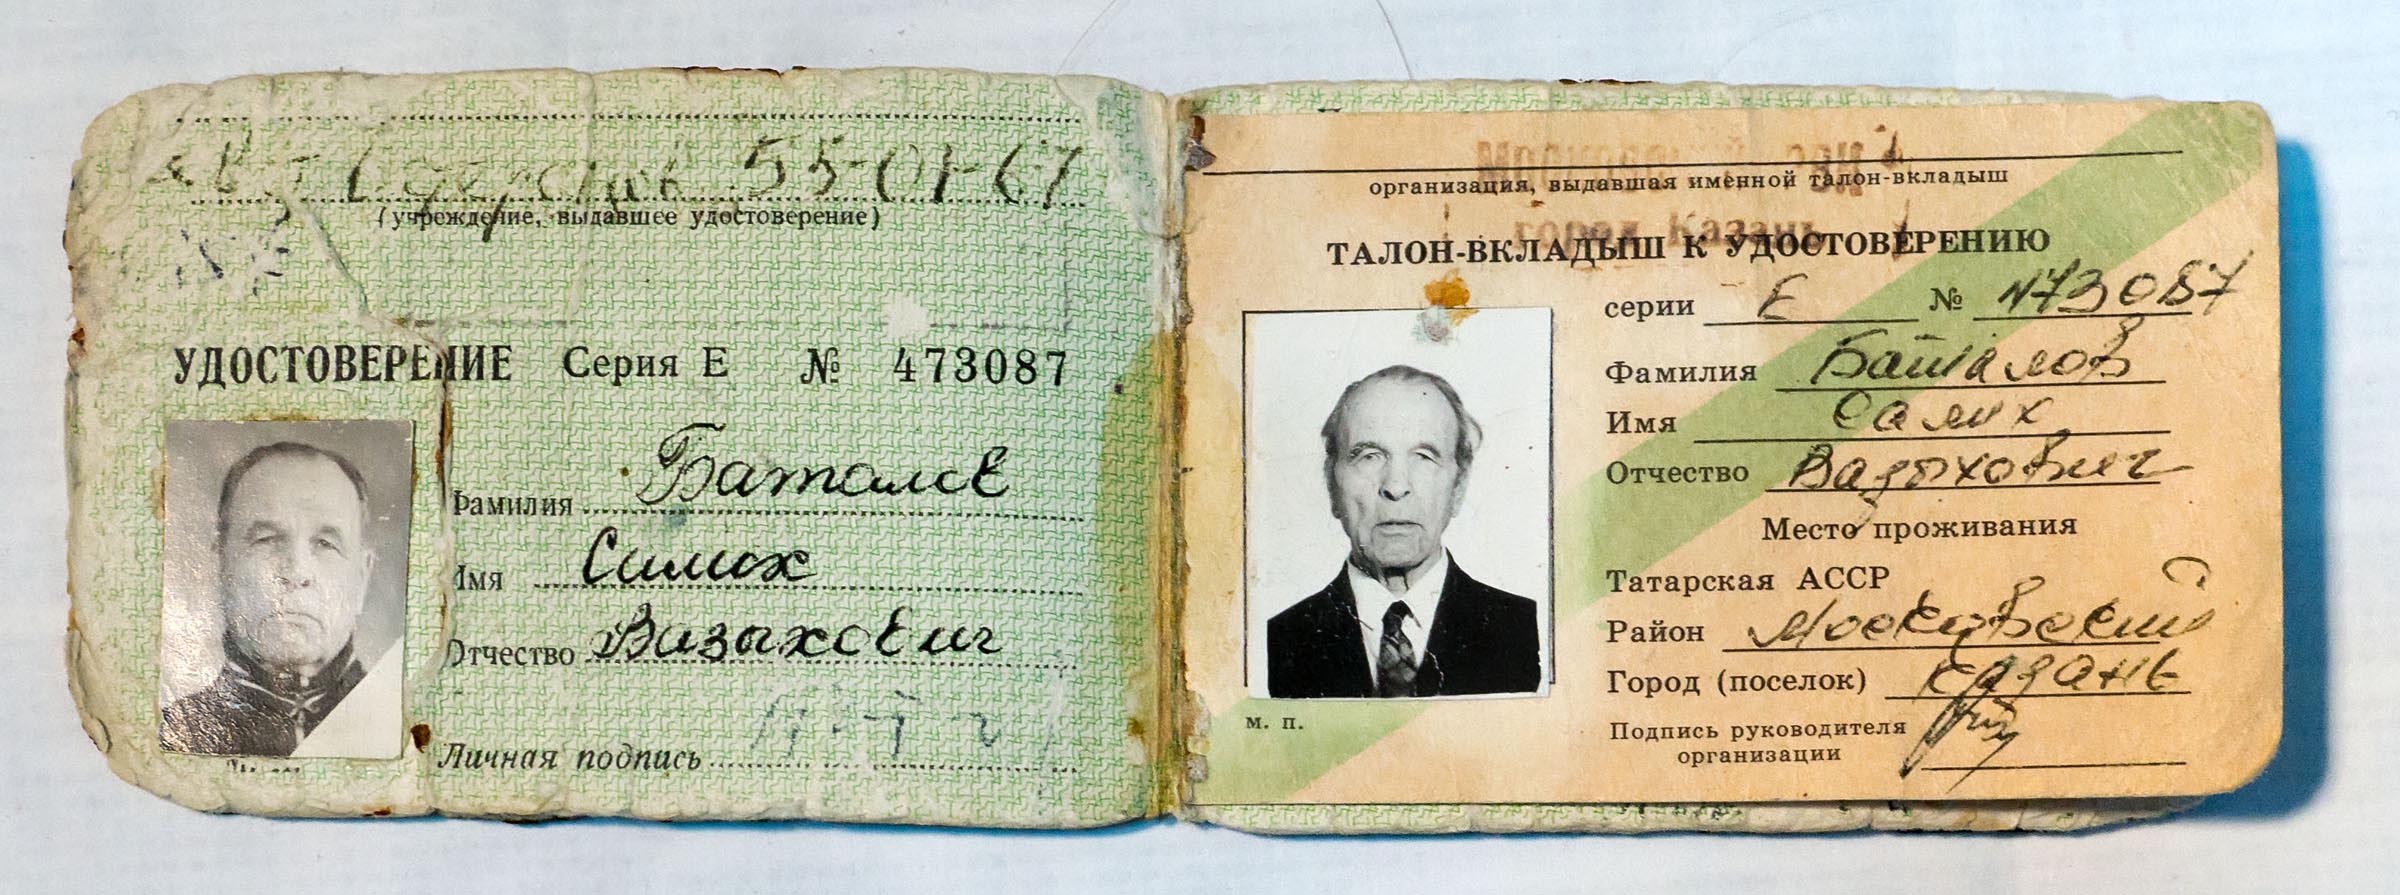 55-01-67
(учреждение, выдавшее удостоверение)
УДОСТОВЕРЕНИЕ Серия Е № 473087
Фамилия Баталов
Имя Салих
Отчество Вазыхович
Личная подпись
организация, выдавшая именной талон-вкладыш
город Казань
ТАЛОН-ВКЛАДЫШ К УДОСТОВЕРЕНИЮ
серии Е № 473087
Фамилия Баталов
Имя Салих
Отчество Вазыхович
Место проживания
Татарская АССР
Район Московский
Город (поселок) Казань
м. п.
Подпись руководителя
организации